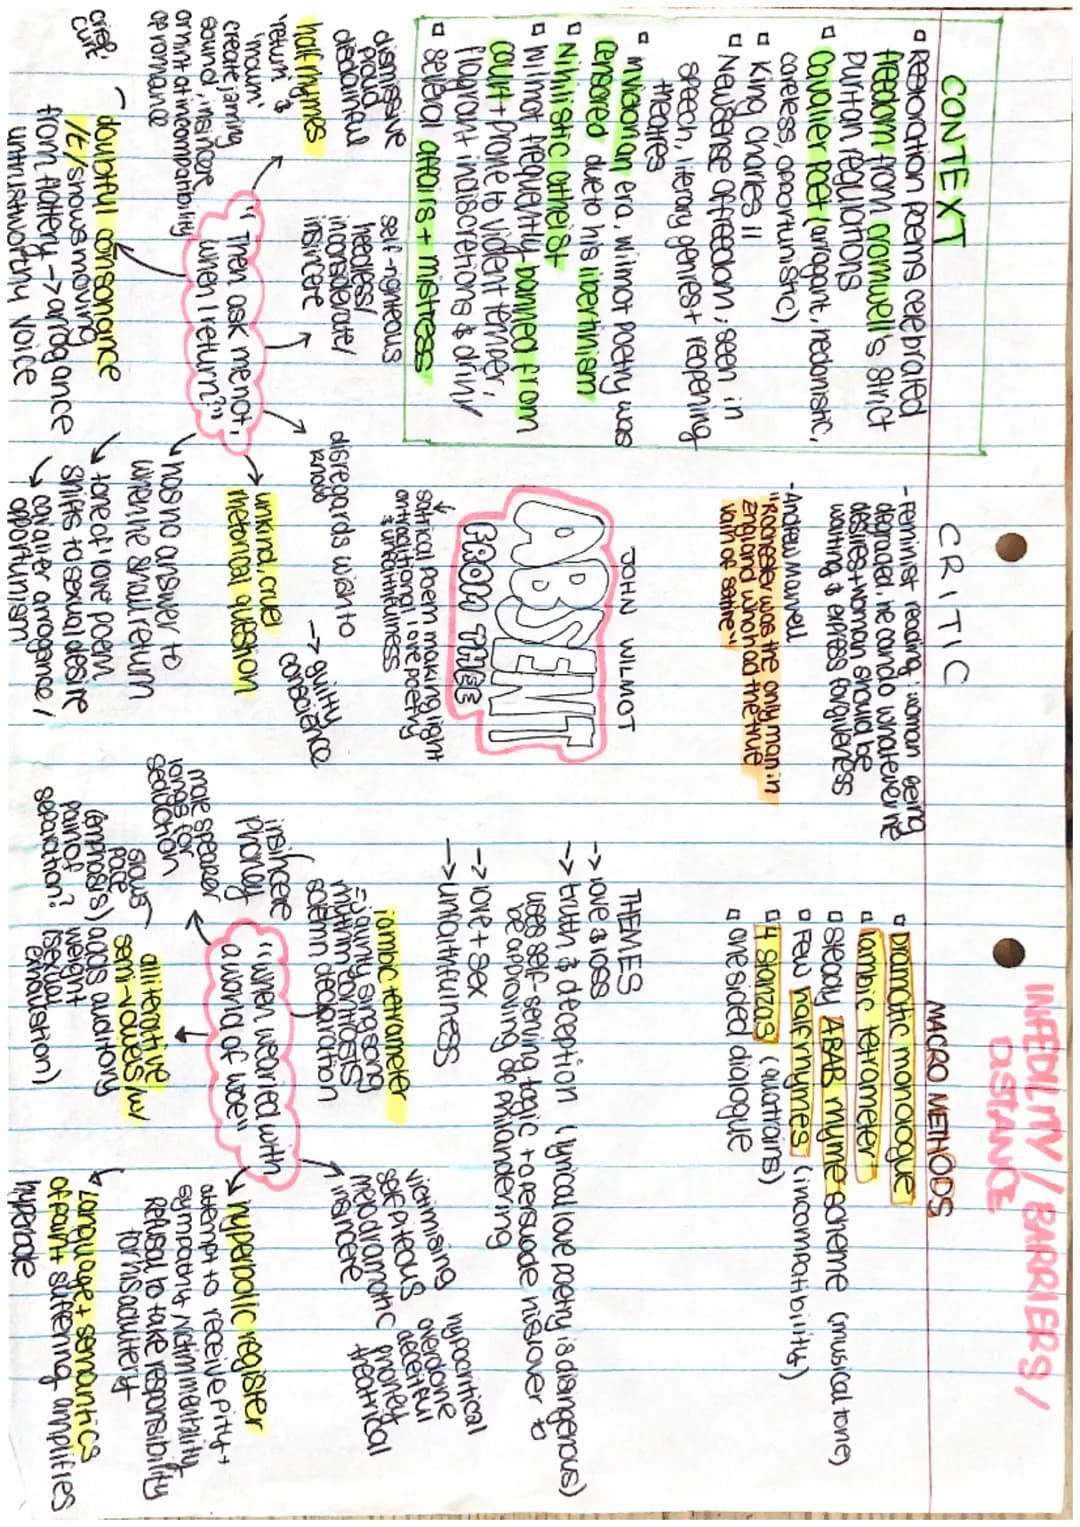 INFEDILITY / BARRIERS /
DISTANCE
CONTEXT
▫ Restoration poems celebrated
freedom from cromwell's strict
puritan regulations
▫ cavalier poet (arrogant, hedonistic,
careless, opportunistic)
▫ King Charles II
▫ New sense of freedom: seen in
speech, literary genies + reopening
theatres
▫ Victorian era, wilmot poetry was
censored due to his libertinism
▫ Nihilistic atheist
▫ Wilmot frequently banned from
court + prone to violent temper,
flagrant indiscretions & drink/
▫ several affairs + mistress
CRITIC
- feminist reading: woman being
degraded, he can do whatever he
desires + woman should be
waiting & express forgiveness
- Andrew Marvell
"Rochester was the only man in
England who had the true
vain of satire"
MACRO METHODS
▫ Dramatic monologue
▫ iambic tetrameter
▫ steady ABAB rhyme scheme (musical tone)
▫ Few half rhymes (incompatibility)
▫ 4 stanzas (quatrains)
▫ one sided dialogue
JOHN WILMOT
ABSENT
FROM THEE
↳ satirical poem making light
on traditional love poetry
& unfaithfulness
THEMES
-> love & loss
-> truth & deception (lyrical love poetry is disingenous)
uses self-serving logic to persuade his lover to
be approving of philandering
-> love + sex
-> unfaithfulness
"Then ask me not,
when I return?"
dismissive
proud
disdainful
half rhymes
'return' &
'mourn'
create jarring
sound, insincere
or hint at incompatibility
of romance
self-righteous
heedless/
inconsiderate/
insincere
disregards wish to
know
-> guilty
conscience
unkind, cruel
rhetorical question
↘ has no answer to
when he shall return
↘ tone of love poem
shifts to sexual desire
↘ cavalier arrogance /
opportunism
doubtful consonance
/t/ shows moving
from flattery -> arrogance
untrustworthy voice
brief,
curt
"when wearied with
a world of woe"
iambic tetrameter
= jaunty singsong
rhythm contrasts
solemn declaration
insincere
phoney
male speaker
longs for
seduction
alliterative
semi-vowels /w/
adds auditory
weight
(sexual
exhaustion)
slows
pace
(emphasis)
pain of
separation?
victimising
self piteous
melodramatic
insincere
hypocritical
overdone
deceitful
phoney
theatrical
hyperbolic register
attempt to receive pity +
sympathy, victim mentality
Refusal to take responsibility
for his adultery
↳ Language + semantics
of pain + suffering amplifies
hyperbole